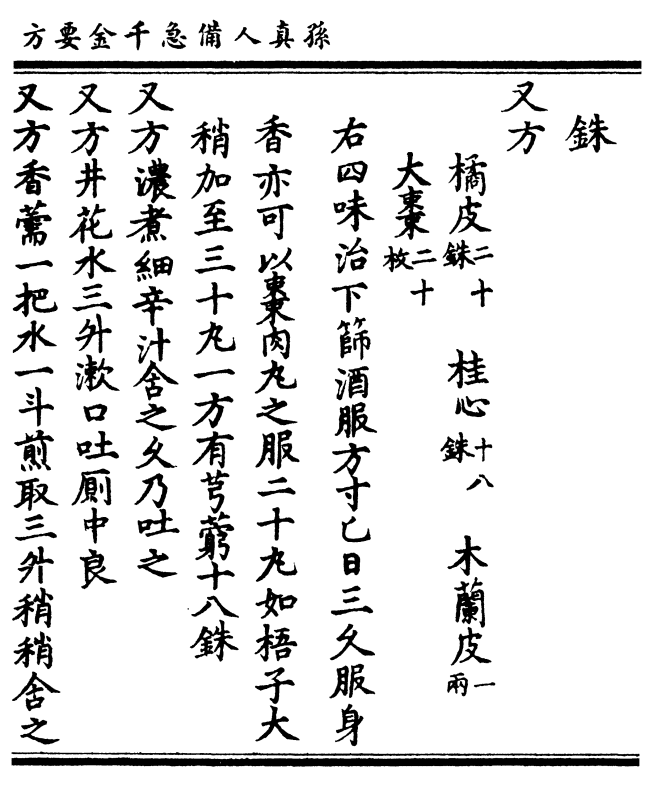 孫真人備急千金要方
銖
又方
橘皮二十銖 桂心十八銖 木蘭皮一兩
大棗二十枚
右四味治下篩酒服方寸匕日三久服身
香亦可以棗肉丸之服二十丸如梧子大
稍加至三十丸一方有芎藭十八銖
又方濃煮細辛汁含之久乃吐之
又方井花水三升漱口吐厠中良
又方香薷一把水一斗煎取三升稍稍含之